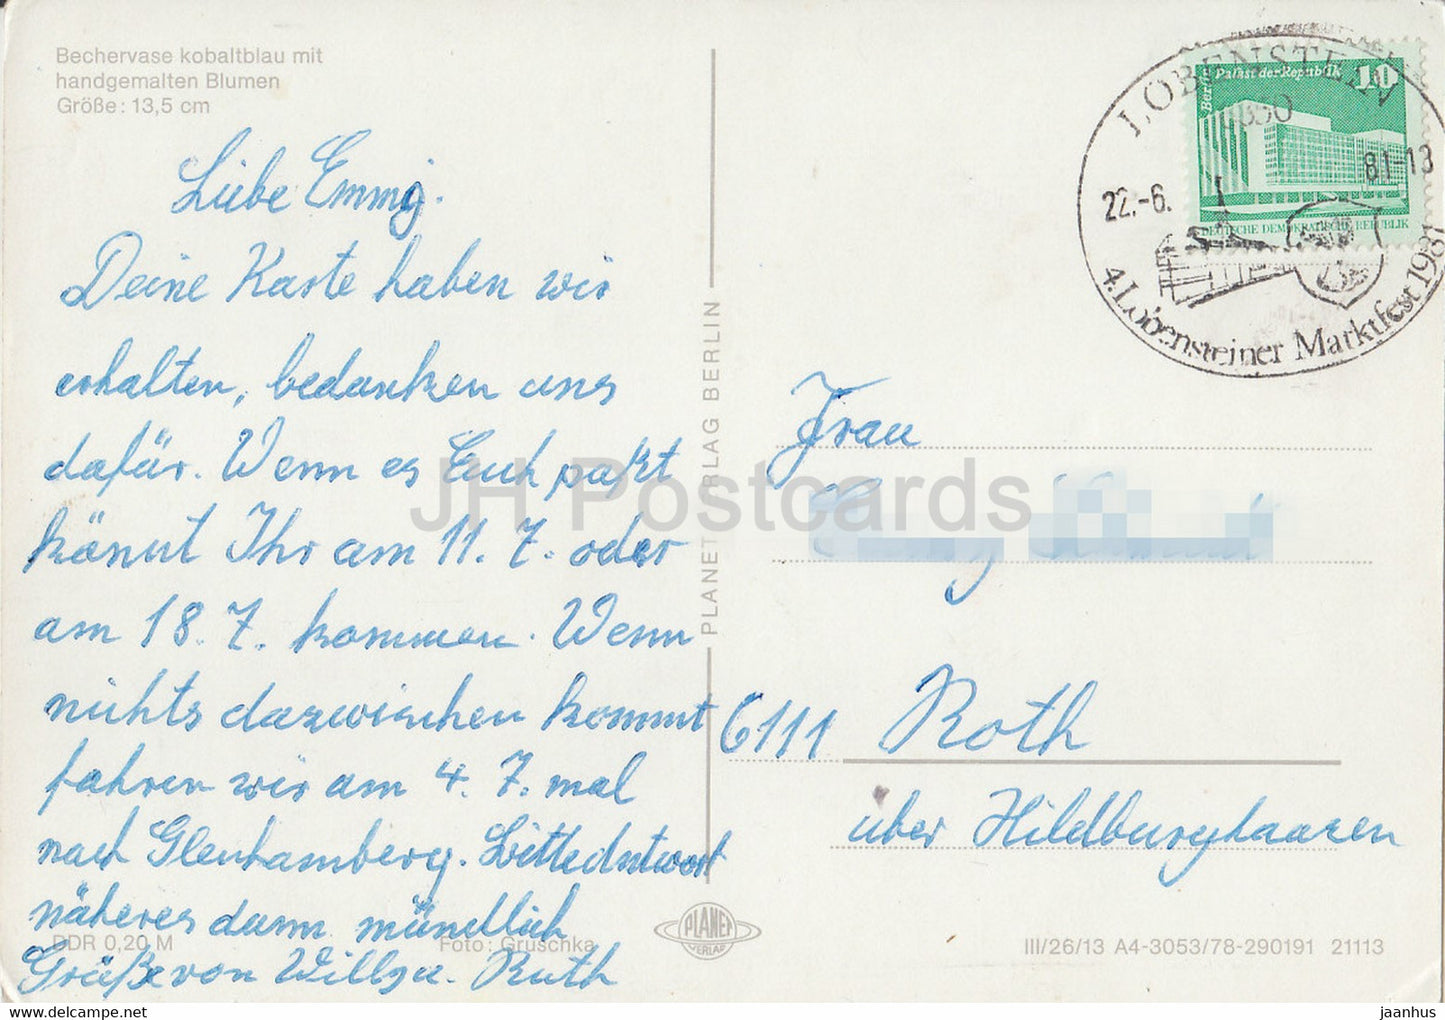 Bechervase kobaltblau mit
handgemalten Blumen
Größe: 13,5 cm
Liebe Emmy.
Deine Karte haben wir
erhalten, bedanken uns
dafür. Wenn es Euch paßt
könnt Ihr am 11. 7. oder
am 18. 7. kommen. Wenn
nichts dazwischen kommt
fahren wir am 4. 7. mal
nach Gleichamberg. Bitte Antwort
näheres dann mündlich
Grüße von Willy u. Ruth
DDR 0,20 M
Foto: Gruschka
PLANET VERLAG BERLIN
PLANET
VERLAG
III/26/13 A4-3053/78-290191 21113
LOBENSTEIN
6850
22.-6. 81-13
4. Lobensteiner Marktfest 1981
Berlin Palast der Republik 10
DEUTSCHE DEMOKRATISCHE REPUBLIK
Frau
6111 Roth
über Hildburghausen
JH Postcards
jaanhus